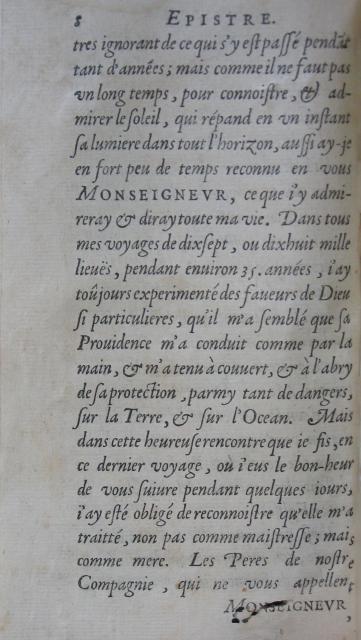 8 EPISTRE.
tres ignorant de ce qui s'y est passé pendãt
tant d'années; mais comme il ne faut pas
vn long temps, pour connoistre, & ad-
mirer le soleil, qui répand en vn instant
sa lumiere dans tout l'horizon, aussi ay-je
en fort peu de temps reconnu en vous
MONSEIGNEVR, ce que i'y admi-
reray & diray toute ma vie. Dans tous
mes voyages de dixsept, ou dixhuit mille
lieuës, pendant enuiron 35. années, i'ay
toûjours experimenté des faueurs de Dieu
si particulieres, qu'il m'a semblé que sa
Prouidence m'a conduit comme par la
main, & m'a tenu à couuert, & à l'abry
de sa protection, parmy tant de dangers,
sur la Terre, & sur l'Ocean. Mais
dans cette heureuse rencontre que ie fis, en
ce dernier voyage, où i'eus le bon-heur
de vous suiure pendant quelques iours,
i'ay esté obligé de reconnoistre qu'elle m'a
traitté, non pas comme maistresse; mais
comme mere. Les Peres de nostre
Compagnie, qui ne vous appellent,
MONSEIGNEVR